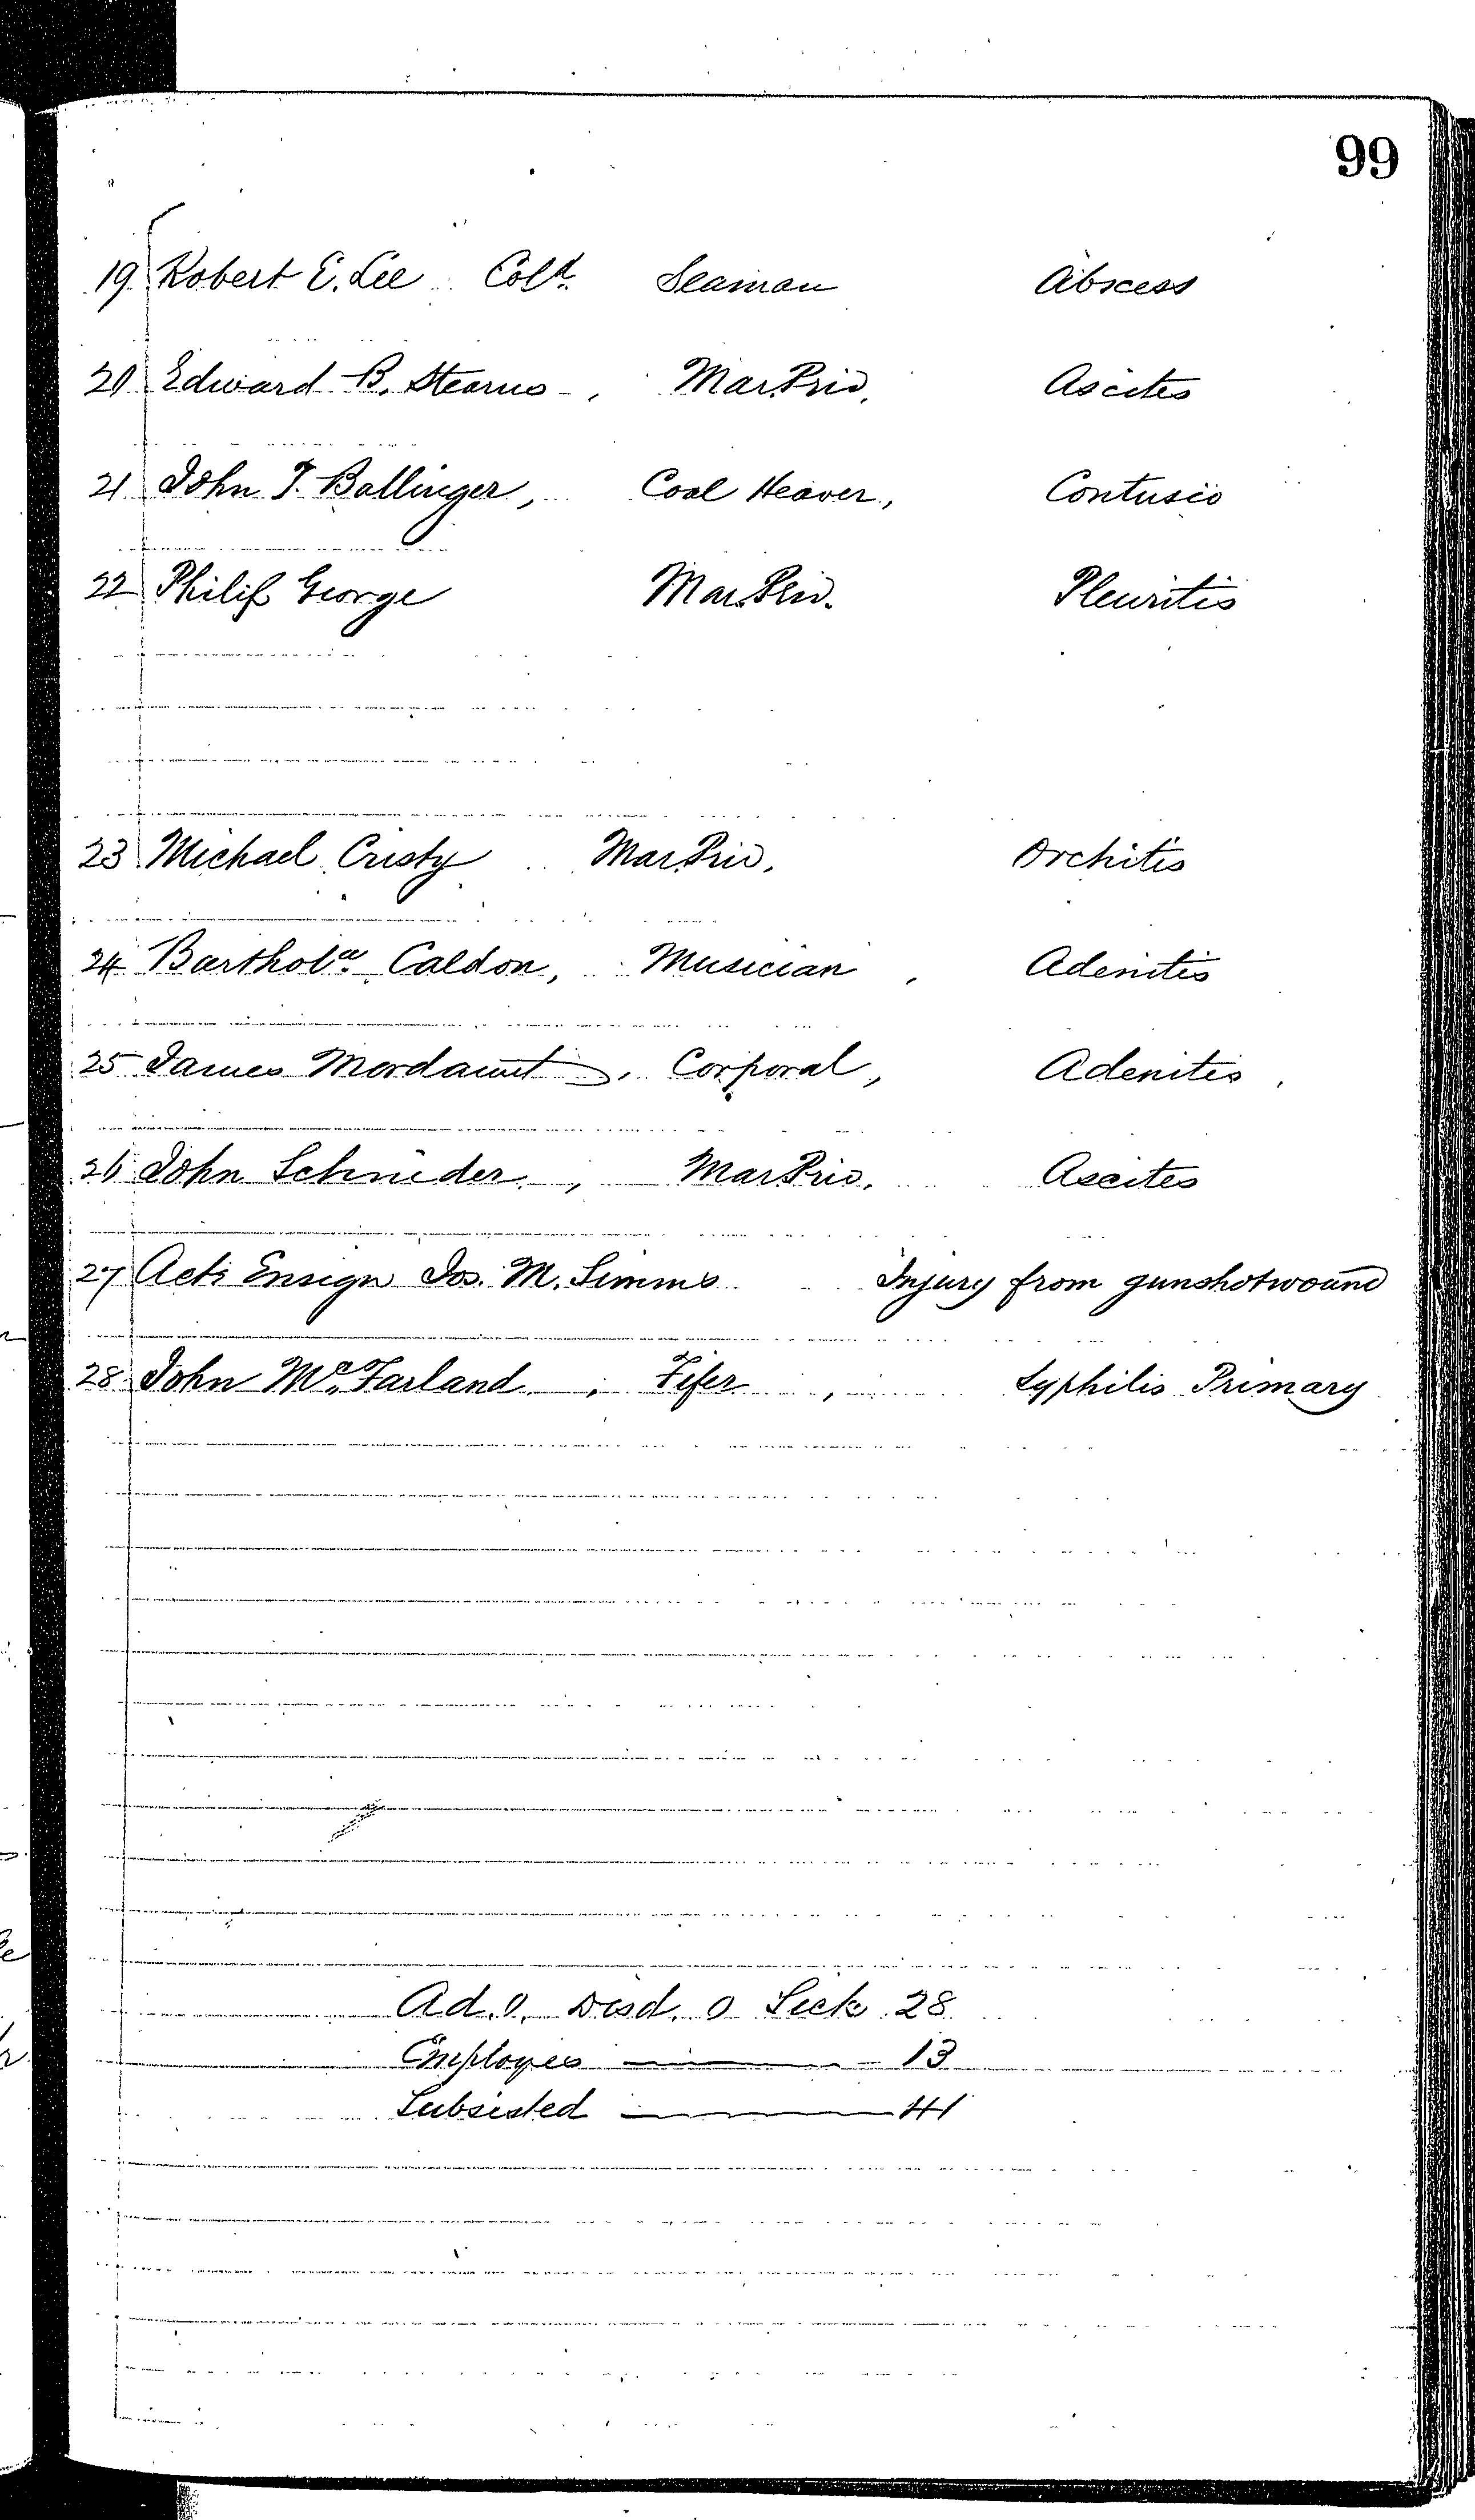 99
19 Robert E. Lee Cold. Seaman Abscess
20 Edward B. Stearns, Mar. Priv. Ascites
21 John T. Ballinger, Coal Heaver, Contusio
22 Philip George Mar. Priv. Pleuritis
23 Michael Cristy Mar. Priv. Orchitis
24 Bartholw. Caldon, Musician, Adenitis
25 James Mordaunt, Corporal, Adenitis,
26 John Schnieder, Mar. Priv. Ascites
27 Actg Ensign Jos. M. Simms Injury from gunshotwound
28 John Mc. Farland, Fifer, Syphilis Primary
Ad. 0. Disd. 0 Sick 28
Employees — 13
Subsisted — 41